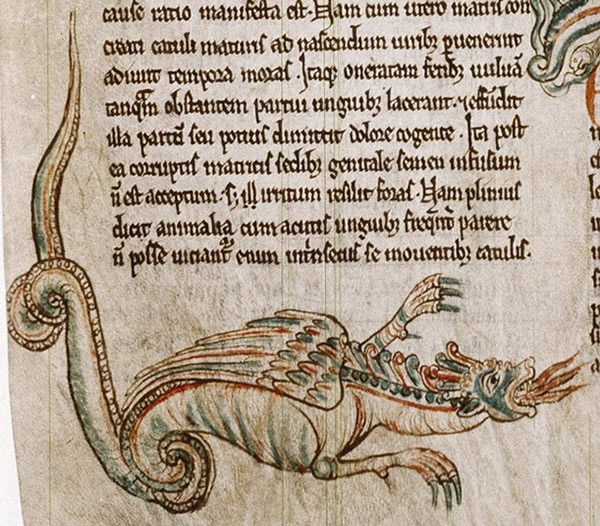 cause ratio manifesta est. Nam cum utero matris con
creati catuli maturis ad nascendum uiribꝫ ꝑuenerint
tempora moras. Itaqꝫ oneratam fetibꝫ uuluā
tanq̄m obstantem partui unguibꝫ lacerant. ⁊ effūdit
illa partū seu potius dimittit dolore cogente. Ita post
ea corruptis matricis sedibꝫ genitale semen infusum
ñ est acceptum. irritum resilit foras. Nam plinius
dicit animalia cum acutis unguibꝫ parere
ñ posse enim intrīsecus se mouentibꝫ catulis.